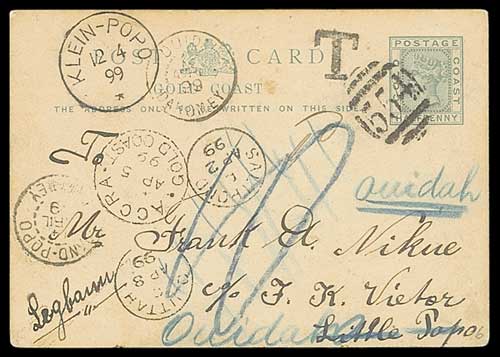 POST CARD
GOLD COAST
THE ADDRESS ONLY TO BE WRITTEN ON THIS SIDE.
POSTAGE
GOLD COAST
HALF PENNY
T
554
KLEIN-POPO
12/4
99
*
OUIDAH
DAHOMEY
ACCRA
GOLD COAST
AP 5
99
AP 2
99
QUITTAH
AP 8
99
GRAND-POPO
AVRIL
Ouidah
Mr
Frank A. Nikue
c/o F. K. Vietor
Little Popo
Ouidah